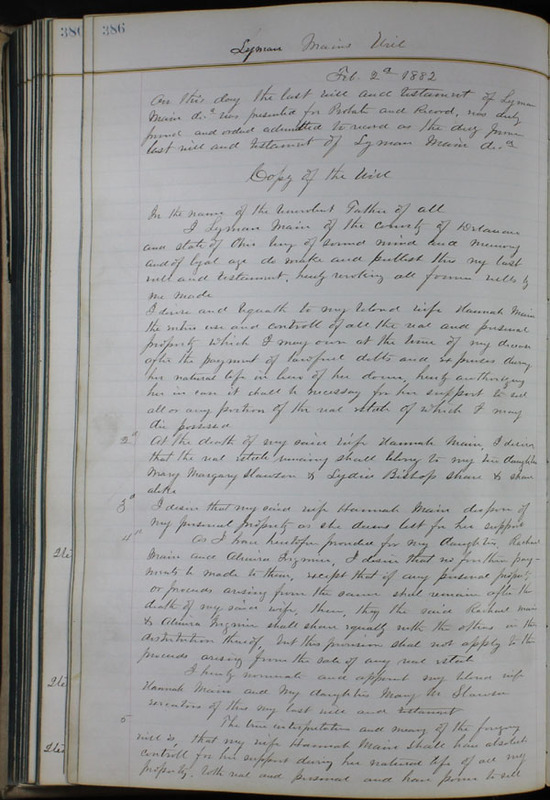 386 386
Lyman Mains Will
Feb. 2d 1882
On this day the last will and testament of Lyman
Main decd was presented for Probate and Record, was duly
proved and ordered admitted to record as the duly proven
last will and testament of Lyman Main decd
Copy of the Will
In the name of the Benevolent Father of all
I Lyman Main of the County of Delaware
and state of Ohio being of sound mind and memory
and of legal age do make and publish this my last
will and testament, hereby revoking all former wills by
me made
I devise and bequeath to my beloved wife Hannah Main
the entire use and controll of all the real and personal
property which I may own at the time of my decease
after the payment of lawfull debts and expenses during
her natural life in lieu of her dower, hereby authorizing
her in case it shall be necessary for her support to sell
all or any portion of the real estate of which I may
die possessed
2d At the death of my said wife Hannah Main, I desire
that the real estate remaining shall belong to my two daughters
Mary Margary Slawson & Lydia Bishop share & share
alike
3d I desire that my said wife Hannah Main dispose of
my personal property as she deems best for her support
4th As I have heretofore provided for my daughters Rachael
Main and Almira, I desire that no further pay-
ments be made to them, except that if any personal property
or proceeds arising from the same shall remain after the
death of my said wife, then, they the said Rachael Main
& Almira shall share equally with the others in the
distribution thereof, but this provision shall not apply to the
proceeds arising from the sale of any real estate
I hereby nominate and appoint my beloved wife
Hannah Main and my daughter Mary M. Slawson
executors of this my last will and testament
5 The true interpretation and meaning of the foregoing
will is, that my wife Hannah Main shall have absolute
controll for her support during her natural life of all my
property, both real and personal and have power to sell